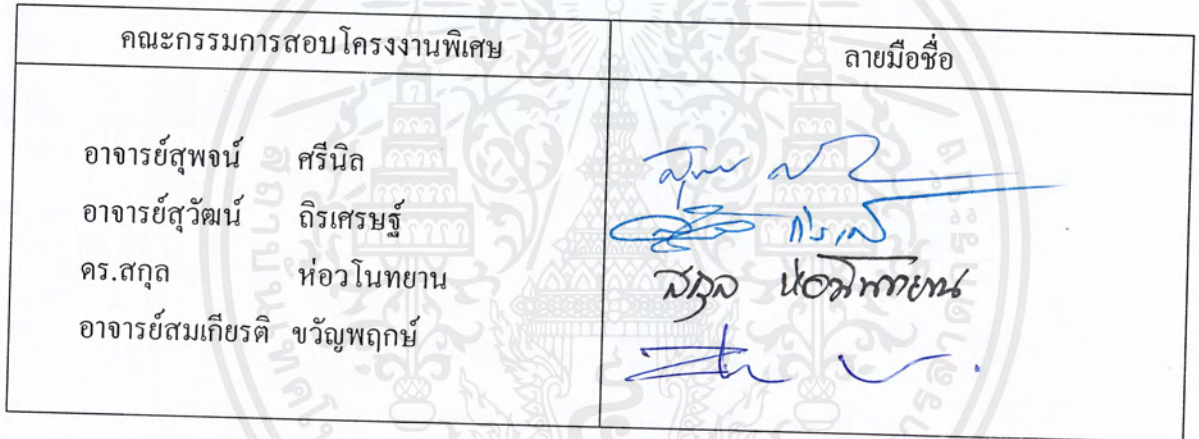 คณะกรรมการสอบโครงงานพิเศษ ลายมือชื่อ
อาจารย์สุพจน์ ศรีนิล
อาจารย์สุวัฒน์ ถิรเศรษฐ์
ดร.สกุล ห่อวโนทยาน สกุล ห่อวโนทยาน
อาจารย์สมเกียรติ ขวัญพฤกษ์